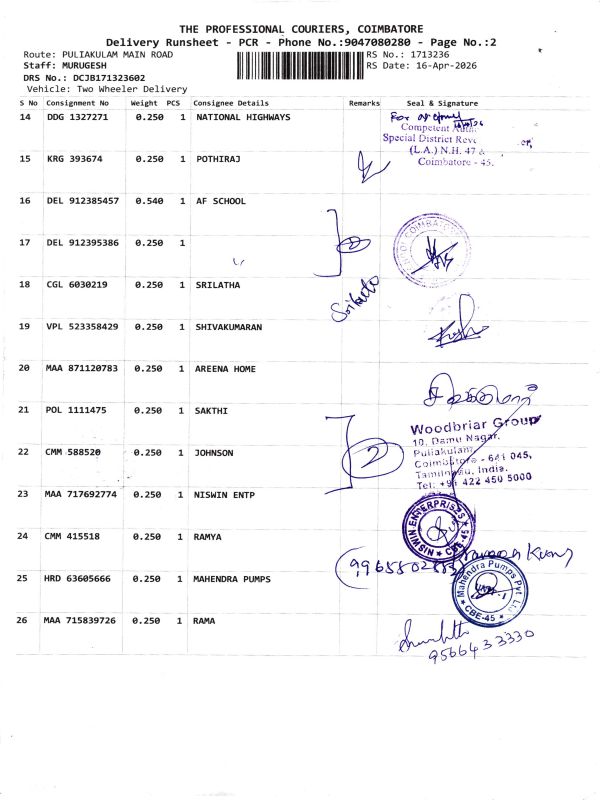 THE PROFESSIONAL COURIERS, COIMBATORE
Delivery Runsheet - PCR - Phone No.:9047080280 - Page No.:2
Route: PULIAKULAM MAIN ROAD
RS No.: 1713236
Staff: MURUGESH
RS Date: 16-Apr-2026
DRS No.: DCJB171323602
Vehicle: Two Wheeler Delivery
S No Consignment No Weight PCS Consignee Details Remarks Seal & Signature
14 DDG 1327271 0.250 1 NATIONAL HIGHWAYS
For
Competent
Special District Reve
(L.A.) N.H. 47 &
Coimbatore - 45.
15 KRG 393674 0.250 1 POTHIRAJ
16 DEL 912385457 0.540 1 AF SCHOOL
17 DEL 912395386 0.250 1
2
COIMBATO
18 CGL 6030219 0.250 1 SRILATHA
19 VPL 523358429 0.250 1 SHIVAKUMARAN
20 MAA 871120783 0.250 1 AREENA HOME
21 POL 1111475 0.250 1 SAKTHI
Woodbriar Group
10, Damu Nagar,
Puliakulam
Coimbatore - 641 045,
Tamilnadu, India.
Tel: +91 422 450 5000
22 CMM 588520 0.250 1 JOHNSON
2
23 MAA 717692774 0.250 1 NISWIN ENTP
NISWIN ENTERPRISES
CBE-45
24 CMM 415518 0.250 1 RAMYA
25 HRD 63605666 0.250 1 MAHENDRA PUMPS
Mahendra Pumps Pvt. Ltd
CBE-45
26 MAA 715839726 0.250 1 RAMA
9566433330